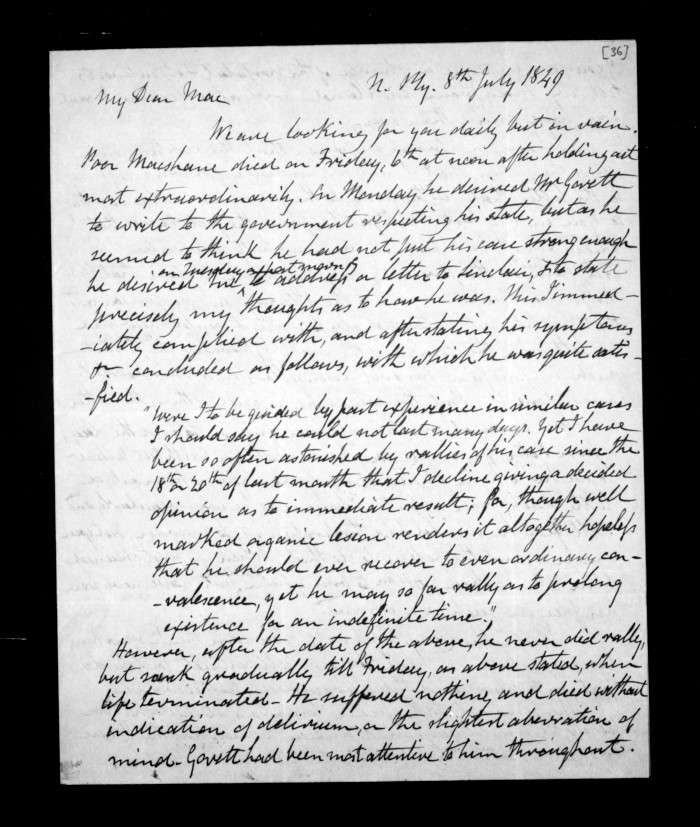 [36]
N. Ply. 8th July 1849
My Dear Mac
We are looking for you daily but in vain.
Poor Macshane died on Friday, 6th at noon after holding out
most extraordinarily. On Monday he desired Mr Govett
to write to the government respecting his state, but as he
seemed to think he had not put his case strong enough
on Tuesday
he desired me to address a letter to Sinclair, & to state
precisely my thoughts as to how he was. This I immed-
-iately complied with, and after stating his symptoms
&c concluded as follows, with which he was quite satis-
-fied.
"Were I to be guided by past experience in similar cases
I should say he could not last many days. Yet I have
been so often astonished by rallies of his case since the
18th or 20th of last month that I decline giving a decided
opinion as to immediate result; for, though well
marked organic lesion renders it altogether hopeless
that he should ever recover to even ordinary con-
-valescence, yet he may so far rally as to prolong
existence for an indefinite time."
However, after the date of the above, he never did rally,
but sank gradually till Friday, as above stated, when
life terminated - He suffered nothing, and died without
indication of delirium, or the slightest aberration of
mind - Govett had been most attentive to him throughout.